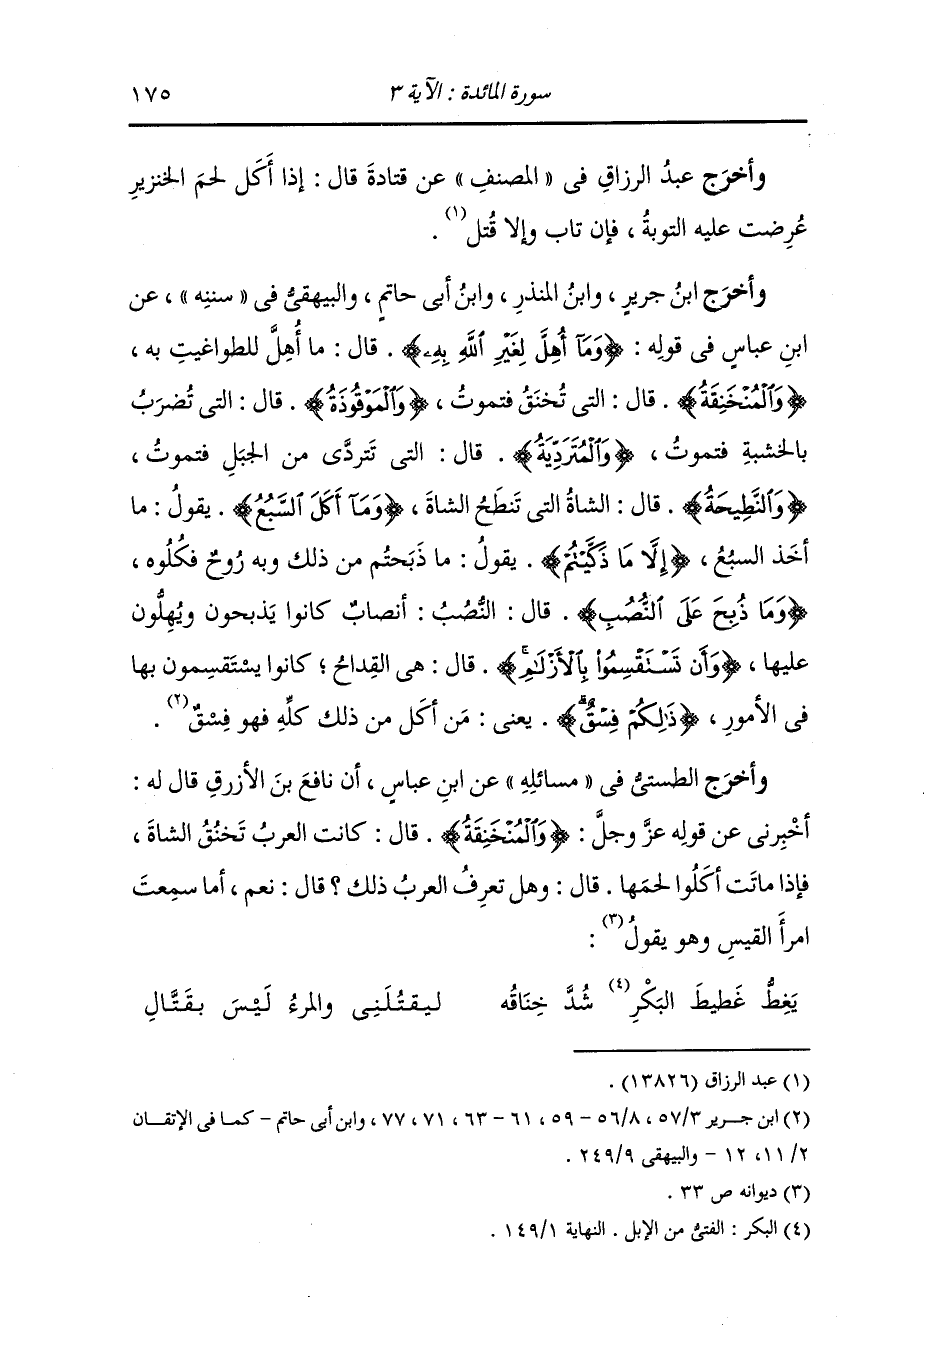 سورة المائدة : الآية ٣ ١٧٥
وأخرَج عبدُ الرزاقِ فى « المصنفِ » عن قتادةَ قال : إذا أكَل لحمَ الخنزيرِ
عُرِضت عليه التوبةُ ، فإن تاب وإلا قُتل(١) .
وأخرَج ابنُ جريرٍ ، وابنُ المنذرِ ، وابنُ أبى حاتمٍ ، والبيهقىُّ فى « سننِه » ، عن
ابنِ عباسٍ فى قولِه : ﴿وَمَآ أُهِلَّ لِغَيْرِ ٱللَّهِ بِهِۦ﴾ . قال : ما أُهِلَّ للطواغيتِ به ،
﴿وَٱلْمُنْخَنِقَةُ﴾ . قال : التى تُخنَقُ فتموتُ ، ﴿وَٱلْمَوْقُوذَةُ﴾ . قال : التى تُضرَبُ
بالخشبةِ فتموتُ ، ﴿وَٱلْمُتَرَدِّيَةُ﴾ . قال : التى تَتردَّى من الجبَلِ فتموتُ ،
﴿وَٱلنَّطِيحَةُ﴾ . قال : الشاةُ التى تَنطَحُ الشاةَ ، ﴿وَمَآ أَكَلَ ٱلسَّبُعُ﴾ . يقولُ : ما
أخَذ السبُعُ ، ﴿إِلَّا مَا ذَكَّيْتُمْ﴾ . يقولُ : ما ذَبَحتُم من ذلك وبه رُوحٌ فكُلُوه ،
﴿وَمَا ذُبِحَ عَلَى ٱلنُّصُبِ﴾ . قال : النُّصُبُ : أنصابٌ كانوا يَذبحون ويُهِلُّون
عليها ، ﴿وَأَن تَسْتَقْسِمُوا۟ بِٱلْأَزْلَٰمِۚ﴾ . قال : هى القِداحُ ؛ كانوا يستَقسِمون بها
فى الأمورِ ، ﴿ذَٰلِكُمْ فِسْقٌۗ﴾ . يعنى : مَن أكَل من ذلك كلِّه فهو فِسْقٌ(٢) .
وأخرَج الطستىُّ فى « مسائلِهِ » عن ابنِ عباسٍ ، أن نافعَ بنَ الأزرقِ قال له :
أخْبِرنى عن قولِه عزَّ وجلَّ : ﴿وَٱلْمُنْخَنِقَةُ﴾ . قال : كانت العربُ تَخنُقُ الشاةَ ،
فإذا ماتَت أكَلُوا لحمَها . قال : وهل تعرِفُ العربُ ذلك ؟ قال : نعم ، أما سمِعتَ
امرأَ القيسِ وهو يقولُ(٣) :
يَغِطُّ غَطيطَ البَكْرِ(٤) شُدَّ خِنَاقُه ليقتُلَنِى والمرءُ لَيْسَ بقَتَّالِ
(١) عبد الرزاق (١٣٨٢٦) .
(٢) ابن جرير ٥٧/٣ ، ٥٦/٨ - ٥٩ ، ٦١ - ٦٣ ، ٧١ ، ٧٧ ، وابن أبى حاتم - كما فى الإتقان
٢/ ١١، ١٢ - والبيهقى ٢٤٩/٩ .
(٣) ديوانه ص ٣٣ .
(٤) البكر : الفتىُّ من الإبل . النهاية ١٤٩/١ .